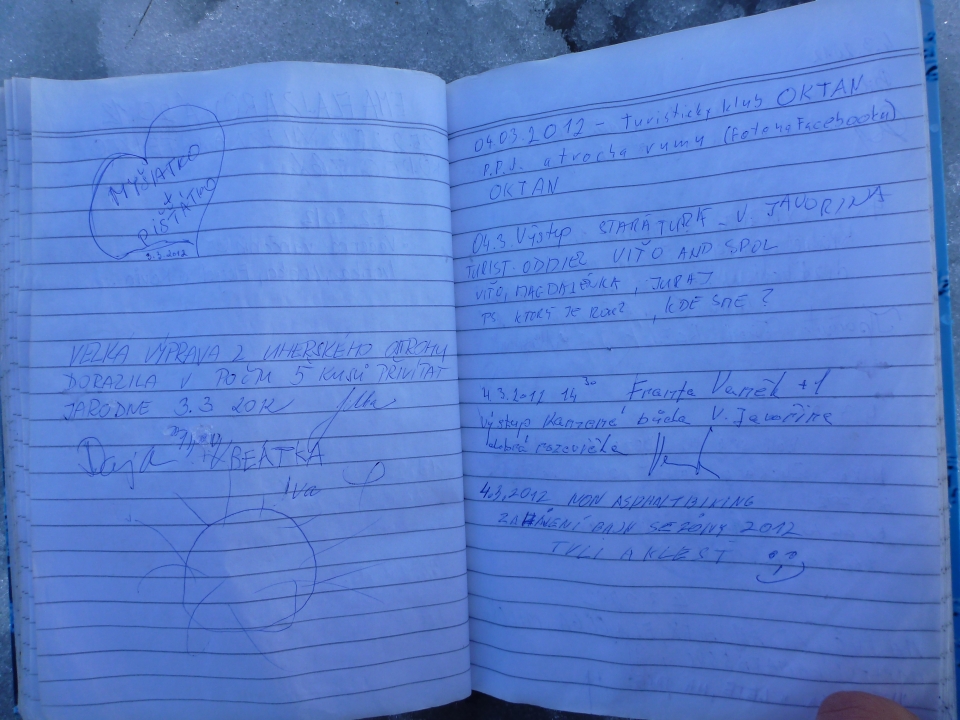 MYŠIATKO
+
PIŠŤÁTKO
3.3.2012
VELKÁ VÝPRAVA Z UHERSKÉHO OSTROHU
DORAZILA V POČTU 5 KUSŮ TŘIVÍTAT
JARODNE 3.3 2012
BEÁTKA
Iva
04.03.2012 - Turistický klub OKTAN
P.P.J. a trocha rumu (Foto na Facebooku)
OKTAN
04.3. Výstup STARÁ TURÁ - V. JAVORINA
TURIST. ODDIEL VIŤO AND SPOL
VIŤO, MAGDALÉNKA, JURAJ
PS KTORÝ JE ROK? KDE SME?
4.3.2012 14 30 Franta Vaněk +1
výstup Kamenná búda V. Javořina
dobrá
4.3.2012 NON ASPHALT BIKING
ZAHÁJENÍ BAJK SEZÓNY 2012
TYLI A KLEŠŤ